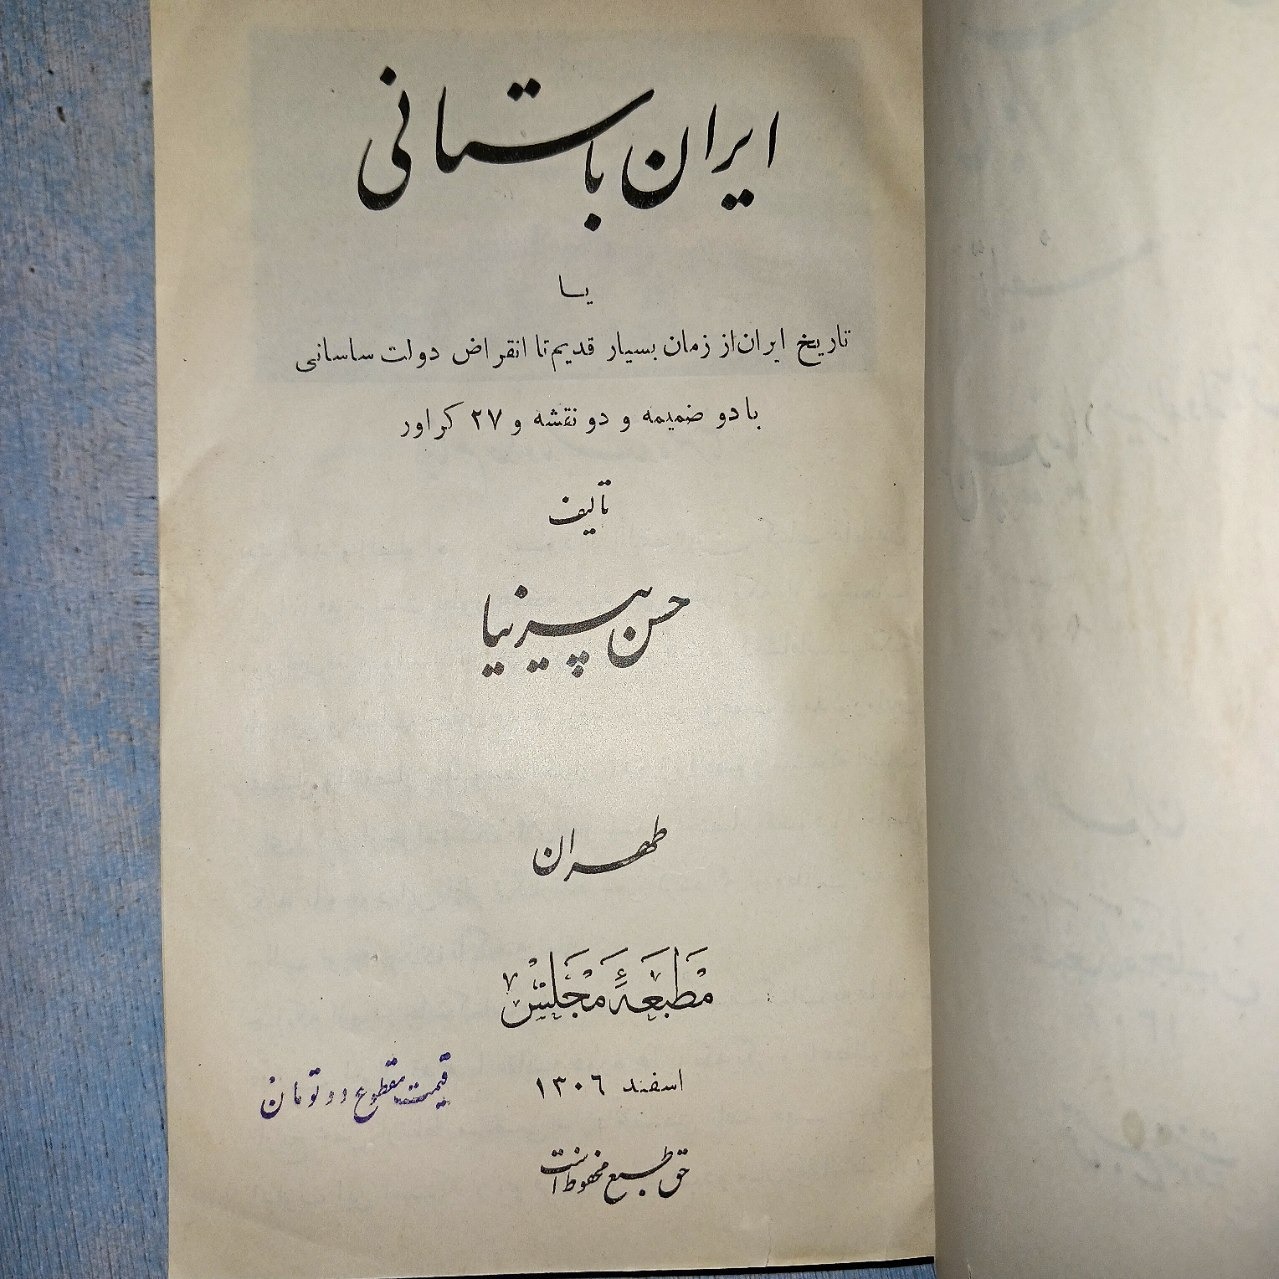 ایران باستانی
یا
تاریخ ایران از زمان بسیار قدیم تا انقراض دولت ساسانی
با دو ضمیمه و دو نقشه و ۲۷ کراور
تألیف
حسن پیرنیا
طهران
مَطبَعَهٔ مَجْلِسْ
اسفند ۱۳۰۶
قیمت مقطوع دو تومان
حق طبع محفوظ است